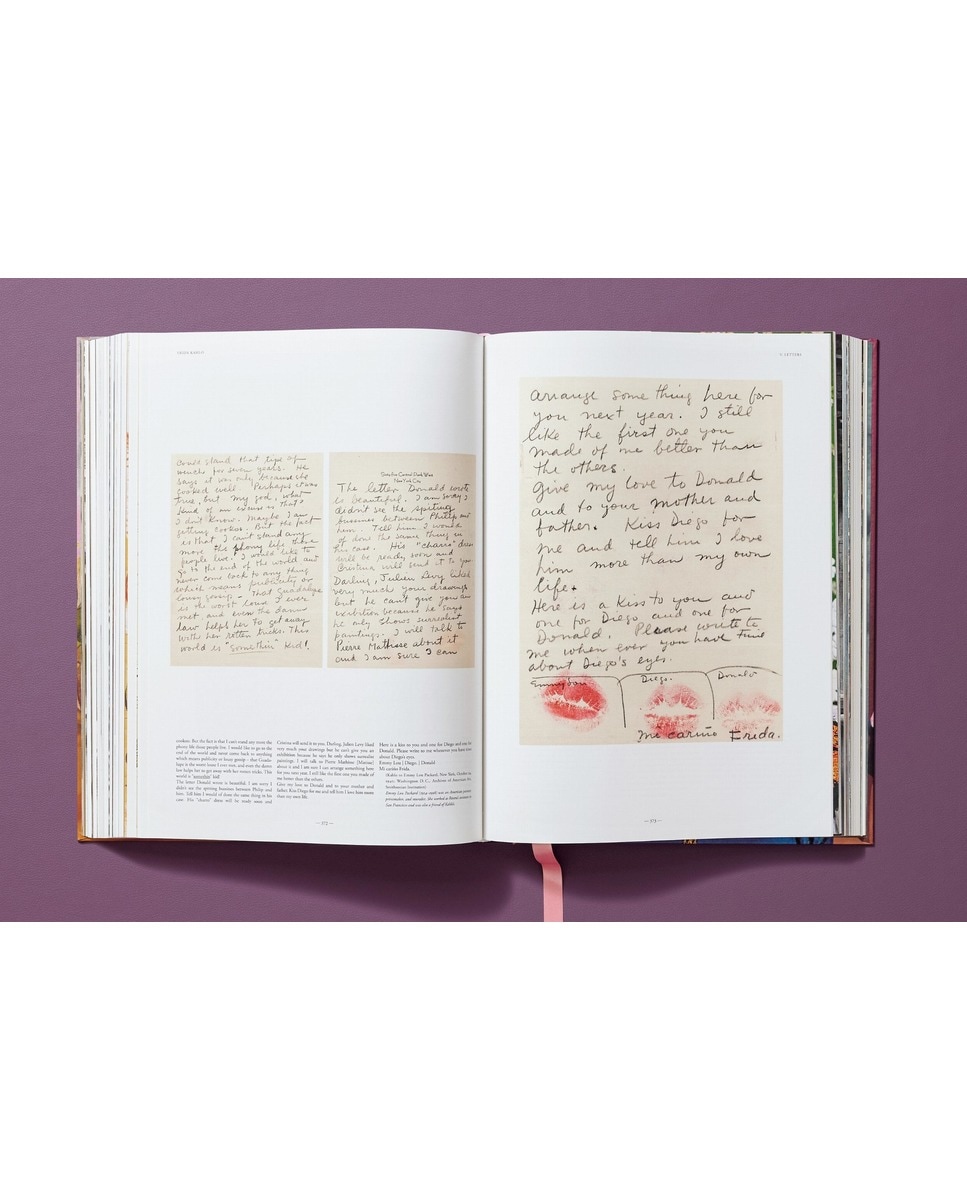 FRIDA KAHLO
could stand that type of
wench for seven years. He
says it was only because she
cooked well. Perhaps it was
true, but my god, what
kind of an excuse is that?
I don't know. Maybe I am
getting cookoo. But the fact
is that I can't stand any
more the phony life these
people live. I would like to
go to the end of the world and
never come back to any thing
which means publicity or
lousy gossip – That Guadalupe
is the worst louse I ever
met and even the damn
law helps her to get away
with her rotten tricks. This
world is "somethin" kid!
Sixty-five Central Park West
New York City
The letter Donald wrote
is beautiful. I am sorry I
didn't see the spitting
bussines between Philip and
him. Tell him I would
of done the same thing in
his case. His "charro" dress
will be ready soon and
Cristina will send it to you
Darling, Julien Levy liked
very much your drawings
but he can't give you an
exibition because he says
he only shows surrealist
paintings. I will talk to
Pierre Mathisse about it
and I am sure I can
cookoo. But the fact is that I can't stand any more the
phonie life those people live. I would like to go to the
end of the world and never come back to anything
which means publicity or lousy gossip – that Guada-
lupe is the worst louse I ever met, and even the damn
law helps her to get away with her rotten tricks. This
world is "somethin" kid!
The letter Donald wrote is beautiful. I am sorry I
didn't see the spitting bussiness between Philip and
him. Tell him I would of done the same thing in his
case. His "charro" dress will be ready soon and
Cristina will send it to you. Darling, Julien Levy liked
very much your drawings but he can't give you an
exhibition because he says he only shows surrealist
paintings. I will talk to Pierre Mathisse [Matisse]
about it and I am sure I can arrange something here
for you next year. I still like the first one you made of
me better than the others.
Give my love to Donald and to your mother and
father. Kiss Diego for me and tell him I love him more
than my own life.
Here is a kiss to you and one for Diego and one for
Donald. Please write to me whenever you have time
about Diego's eyes.
Emmy Lou | Diego. | Donald
Mi cariño Frida.
Smithsonian Institution)
Emmy Lou Packard (1914–1998) was an American painter,
printmaker, and muralist. She worked as Rivera's assistant in
San Francisco and was also a friend of Kahlo's.
— 372 —
V. LETTERS
arrange some thing here for
you next year. I still
like the first one you
made of me better than
the others.
Give my love to Donald
and to your mother and
father. Kiss Diego for
me and tell him I love
him more than my own
life.
Here is a kiss to you and
one for Diego and one for
Donald. Please write to
me when ever you have time
about Diego's eyes.
Emmylou Diego. Donald
mi cariño Frida.
— 373 —